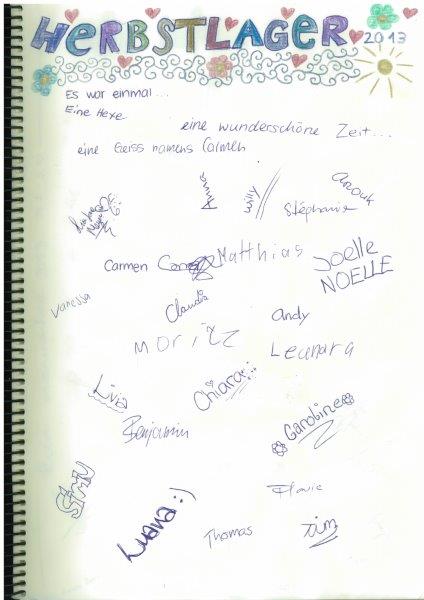 HERBSTLAGER 2013
Es war einmal...
Eine Hexe
eine wunderschöne Zeit...
eine Geiss namens Carmen
Willy
Stéphanie
Anouk
Carmen
Matthias
Joelle
NOELLE
Vanessa
Claudia
Andy
Moritz
Leonara
Livia
Chiara
Benjamin
Caroline
Simin
Flavie
Luana :)
Thomas
Tim